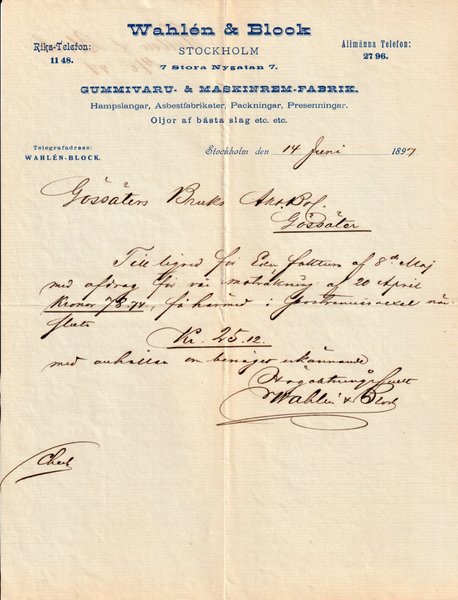 Wahlén & Block
STOCKHOLM
7 Stora Nygatan 7.
Riks-Telefon:
1148.
Allmänna Telefon:
2796.
GUMMIVARU- & MASKINREM-FABRIK.
Hampslangar, Asbestfabrikater, Packningar, Presenningar.
Oljor af bästa slag etc. etc.
Telegrafadress:
WAHLÉN-BLOCK.
Stockholm den 14 Juni 1897
Gössäters Bruks Akt. Bol.
Gössäter
Till liqvid för Eder faktura af 8de Maj
med afdrag för vår moträkning af 20 April
Kronor 78.74, få härmed i postremissvexel när-
sluta
Kr. 25.12.
med anhållan om benäget erkännande
Högaktningsfullt
Wahlén & Block